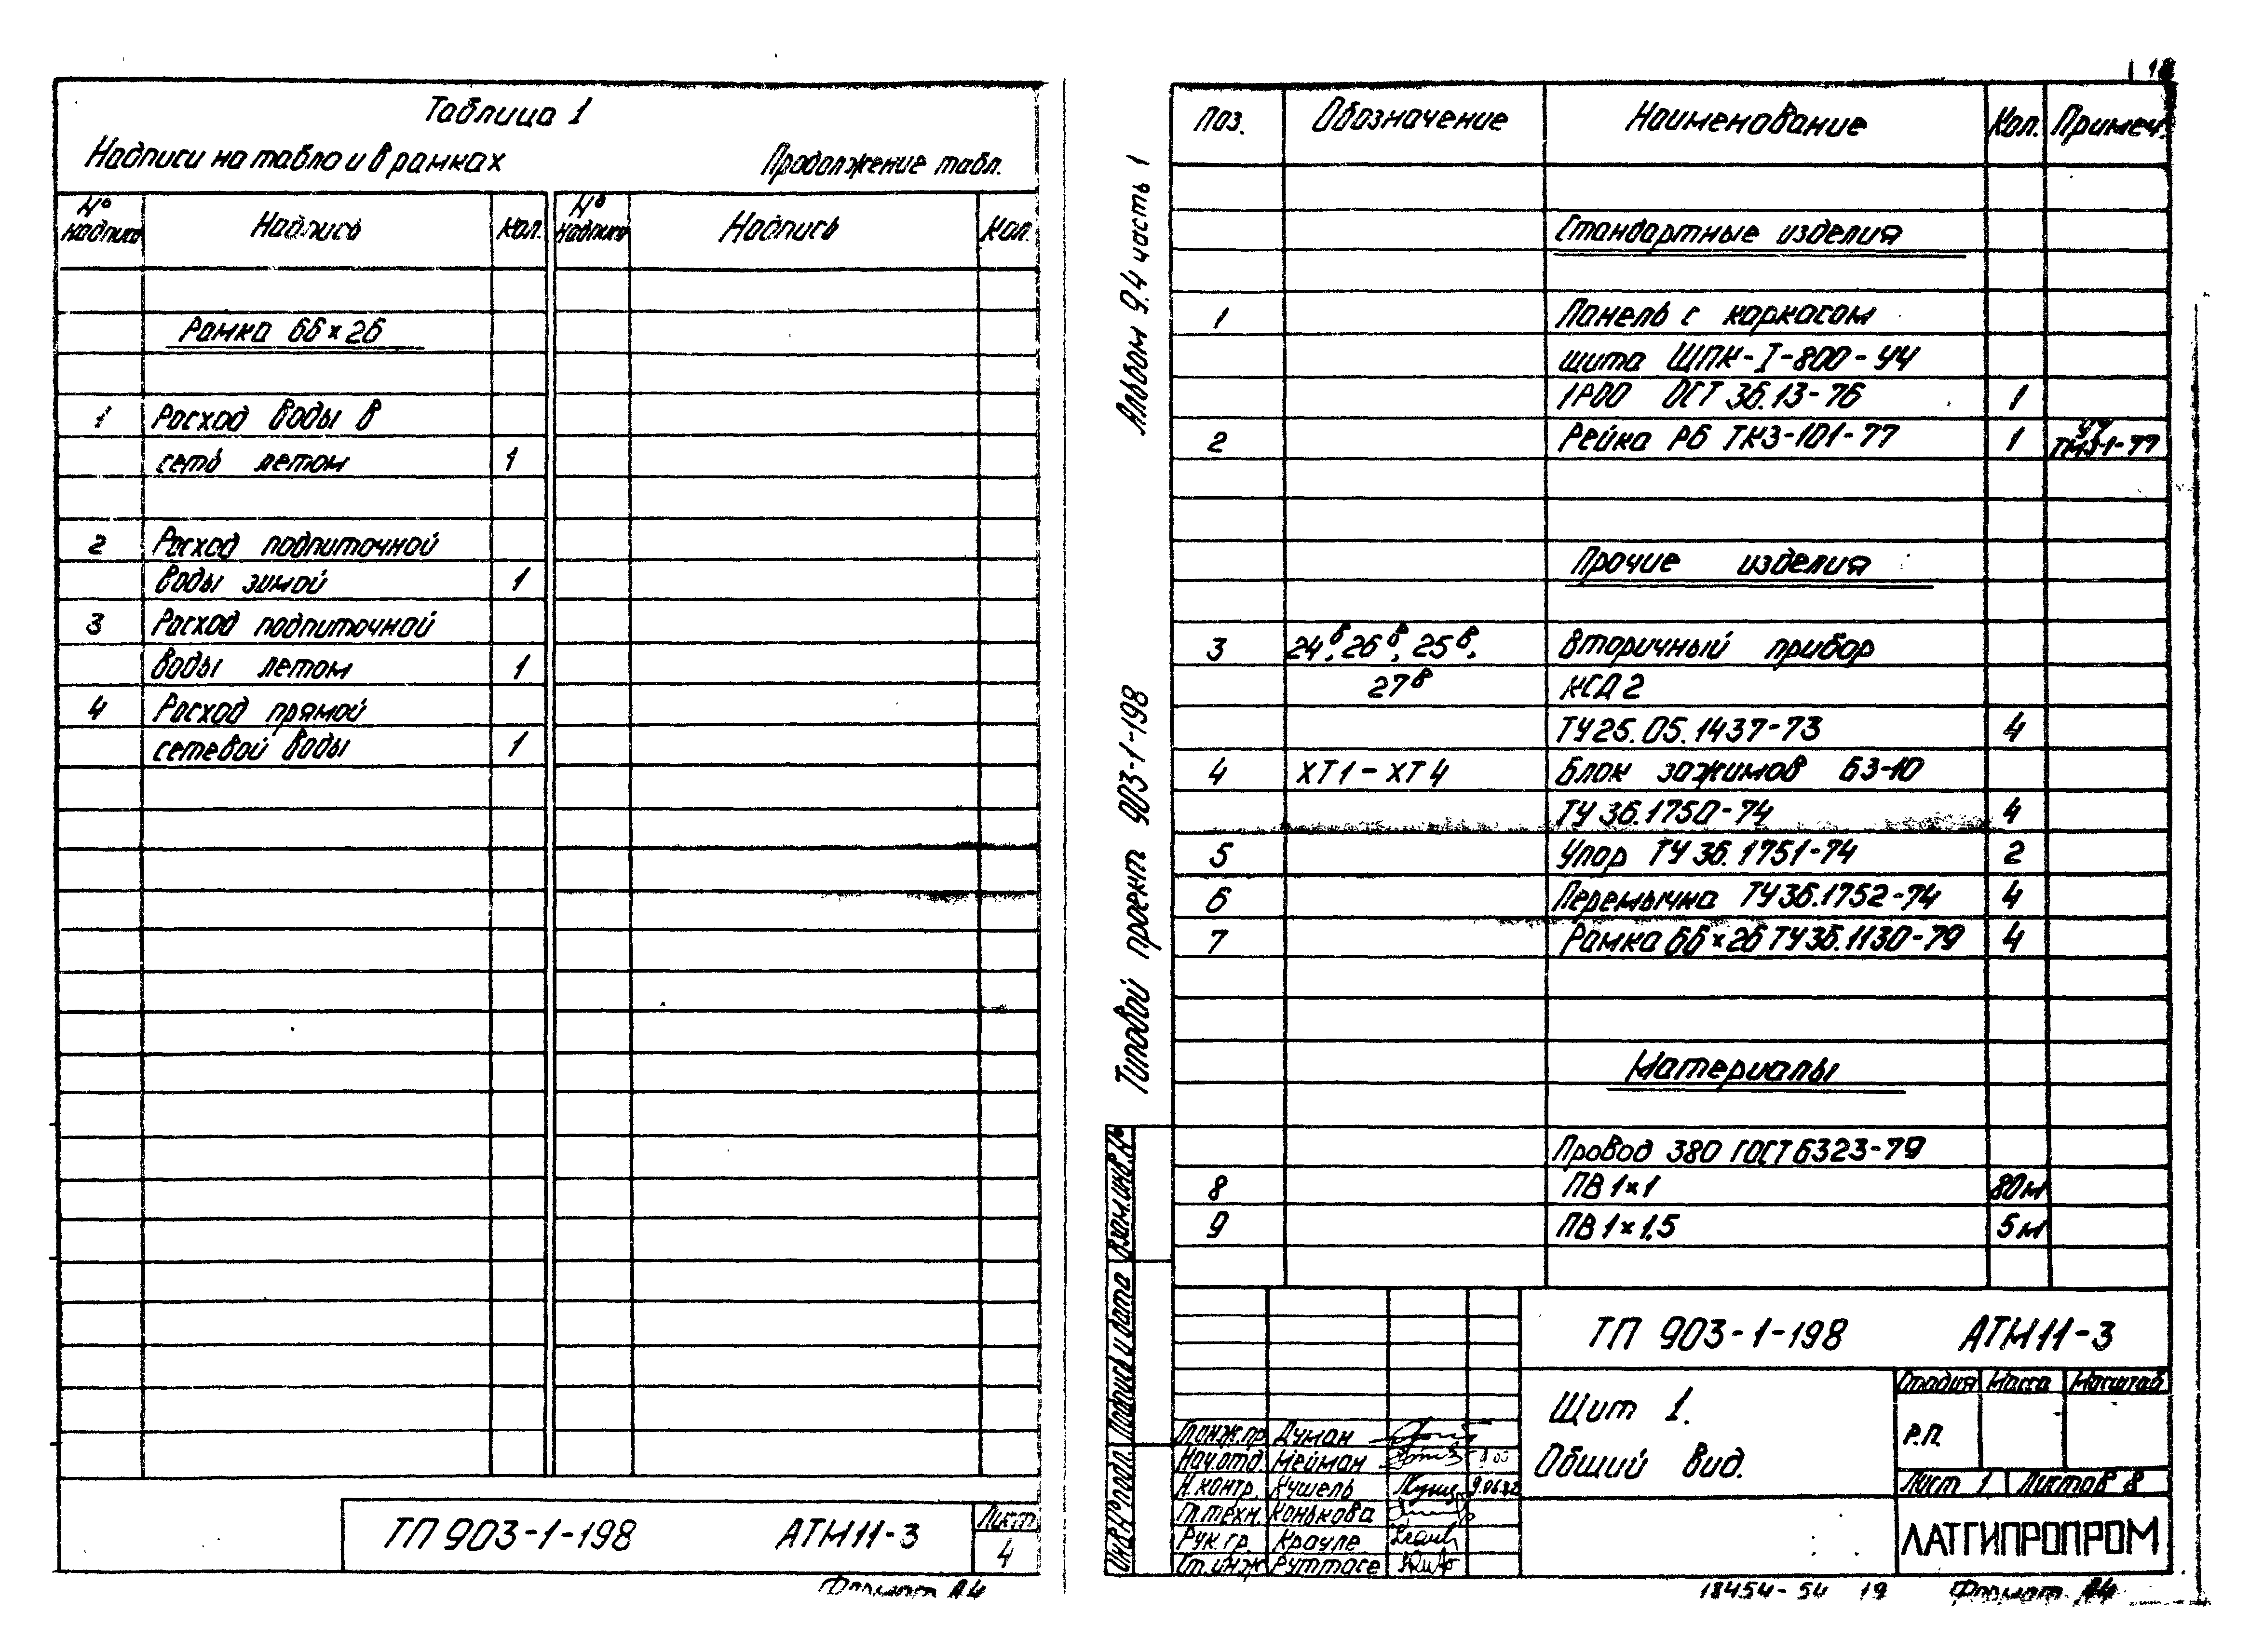 Таблица 1
Надписи на табло и в рамках
Продолжение табл.
№ надписи Надпись Кол. № надписи Надпись Кол.
Рамка 66×26
1 Расход воды в
сеть летом 1
2 Расход подпиточной
воды зимой 1
3 Расход подпиточной
воды летом 1
4 Расход прямой
сетевой воды 1
ТП 903-1-198 АТМ11-3
Лист
4
Формат А4
Альбом 9.4 часть 1
Типовой проект 903-1-198
Взам.инв.№
Подпись и дата
Инв.№ подл.
Поз. Обозначение Наименование Кол. Примеч.
Стандартные изделия
1 Панель с каркасом
щита ЩПК-I-800-УЧ
1Р00 ОСТ 36.13-76 1
2 Рейка Р6 ТК3-101-77 1 ТМ3-1-77
Прочие изделия
3 24в, 26в, 25в, Вторичный прибор
27в КСД2
ТУ25.05.1437-73 4
4 ХТ1-ХТ4 Блок зажимов БЗ-10
ТУ 36.1750-74 4
5 Упор ТУ 36.1751-74 2
6 Перемычка ТУ36.1752-74 4
7 Рамка 66×26 ТУ36.1130-79 4
Материалы
Провод 380 ГОСТ 6323-79
8 ПВ 1×1 80м
9 ПВ 1×1,5 5м
ТП 903-1-198 АТМ11-3
Щит 1.
Общий вид.
Стадия Масса Масштаб
Р.П.
Лист 1 Листов 8
ЛАТГИПРОПРОМ
Гл.инж.пр. Думан
Нач.отд. Мейман
Н.контр. Кушель 9.06.82
Гл.техн. Конькова
Рук.гр. Крауле
Ст.инж. Руттасе
18454-54 19
Формат А4